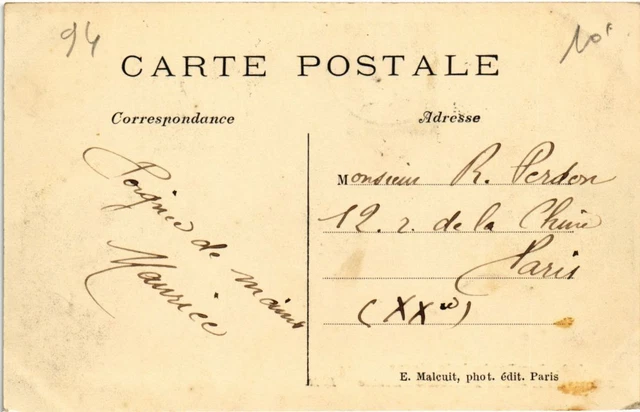 94
10f
CARTE POSTALE
Correspondance
Adresse
Poignée de mains
Maurice
Monsieur R. Perdon
12. r. de la Chine
Paris
(XXe)
E. Malcuit, phot. édit. Paris